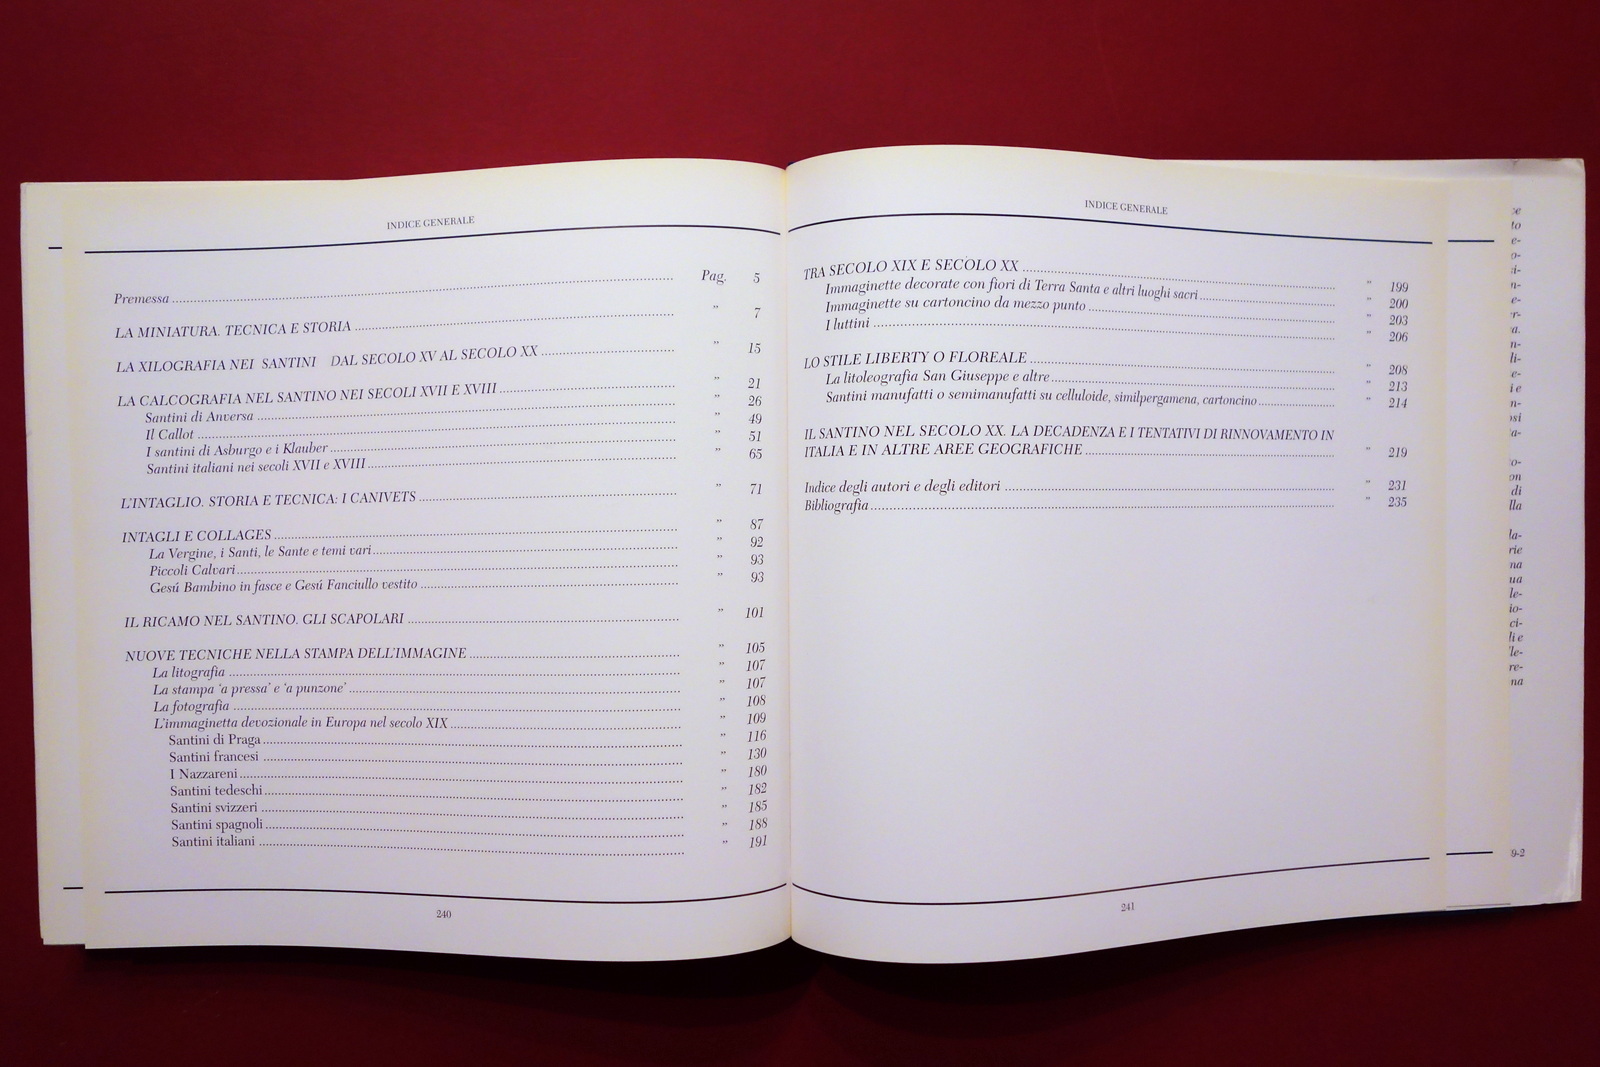 INDICE GENERALE
Pag. 5
Premessa
LA MINIATURA. TECNICA E STORIA " 7
LA XILOGRAFIA NEI SANTINI DAL SECOLO XV AL SECOLO XX " 15
LA CALCOGRAFIA NEL SANTINO NEI SECOLI XVII E XVIII " 21
Santini di Anversa " 26
Il Callot " 49
I santini di Asburgo e i Klauber " 51
Santini italiani nei secoli XVII e XVIII " 65
L'INTAGLIO. STORIA E TECNICA: I CANIVETS " 71
INTAGLI E COLLAGES " 87
La Vergine, i Santi, le Sante e temi vari " 92
Piccoli Calvari " 93
Gesú Bambino in fasce e Gesú Fanciullo vestito " 93
IL RICAMO NEL SANTINO. GLI SCAPOLARI " 101
NUOVE TECNICHE NELLA STAMPA DELL'IMMAGINE " 105
La litografia " 107
La stampa 'a pressa' e 'a punzone' " 107
La fotografia " 108
L'immaginetta devozionale in Europa nel secolo XIX " 109
Santini di Praga " 116
Santini francesi " 130
I Nazzareni " 180
Santini tedeschi " 182
Santini svizzeri " 185
Santini spagnoli " 188
Santini italiani " 191
240
INDICE GENERALE
TRA SECOLO XIX E SECOLO XX " 199
Immaginette decorate con fiori di Terra Santa e altri luoghi sacri " 200
Immaginette su cartoncino da mezzo punto " 203
I luttini " 206
LO STILE LIBERTY O FLOREALE " 208
La litoleografia San Giuseppe e altre " 213
Santini manufatti o semimanufatti su celluloide, similpergamena, cartoncino " 214
IL SANTINO NEL SECOLO XX. LA DECADENZA E I TENTATIVI DI RINNOVAMENTO IN
ITALIA E IN ALTRE AREE GEOGRAFICHE " 219
Indice degli autori e degli editori " 231
Bibliografia " 235
241